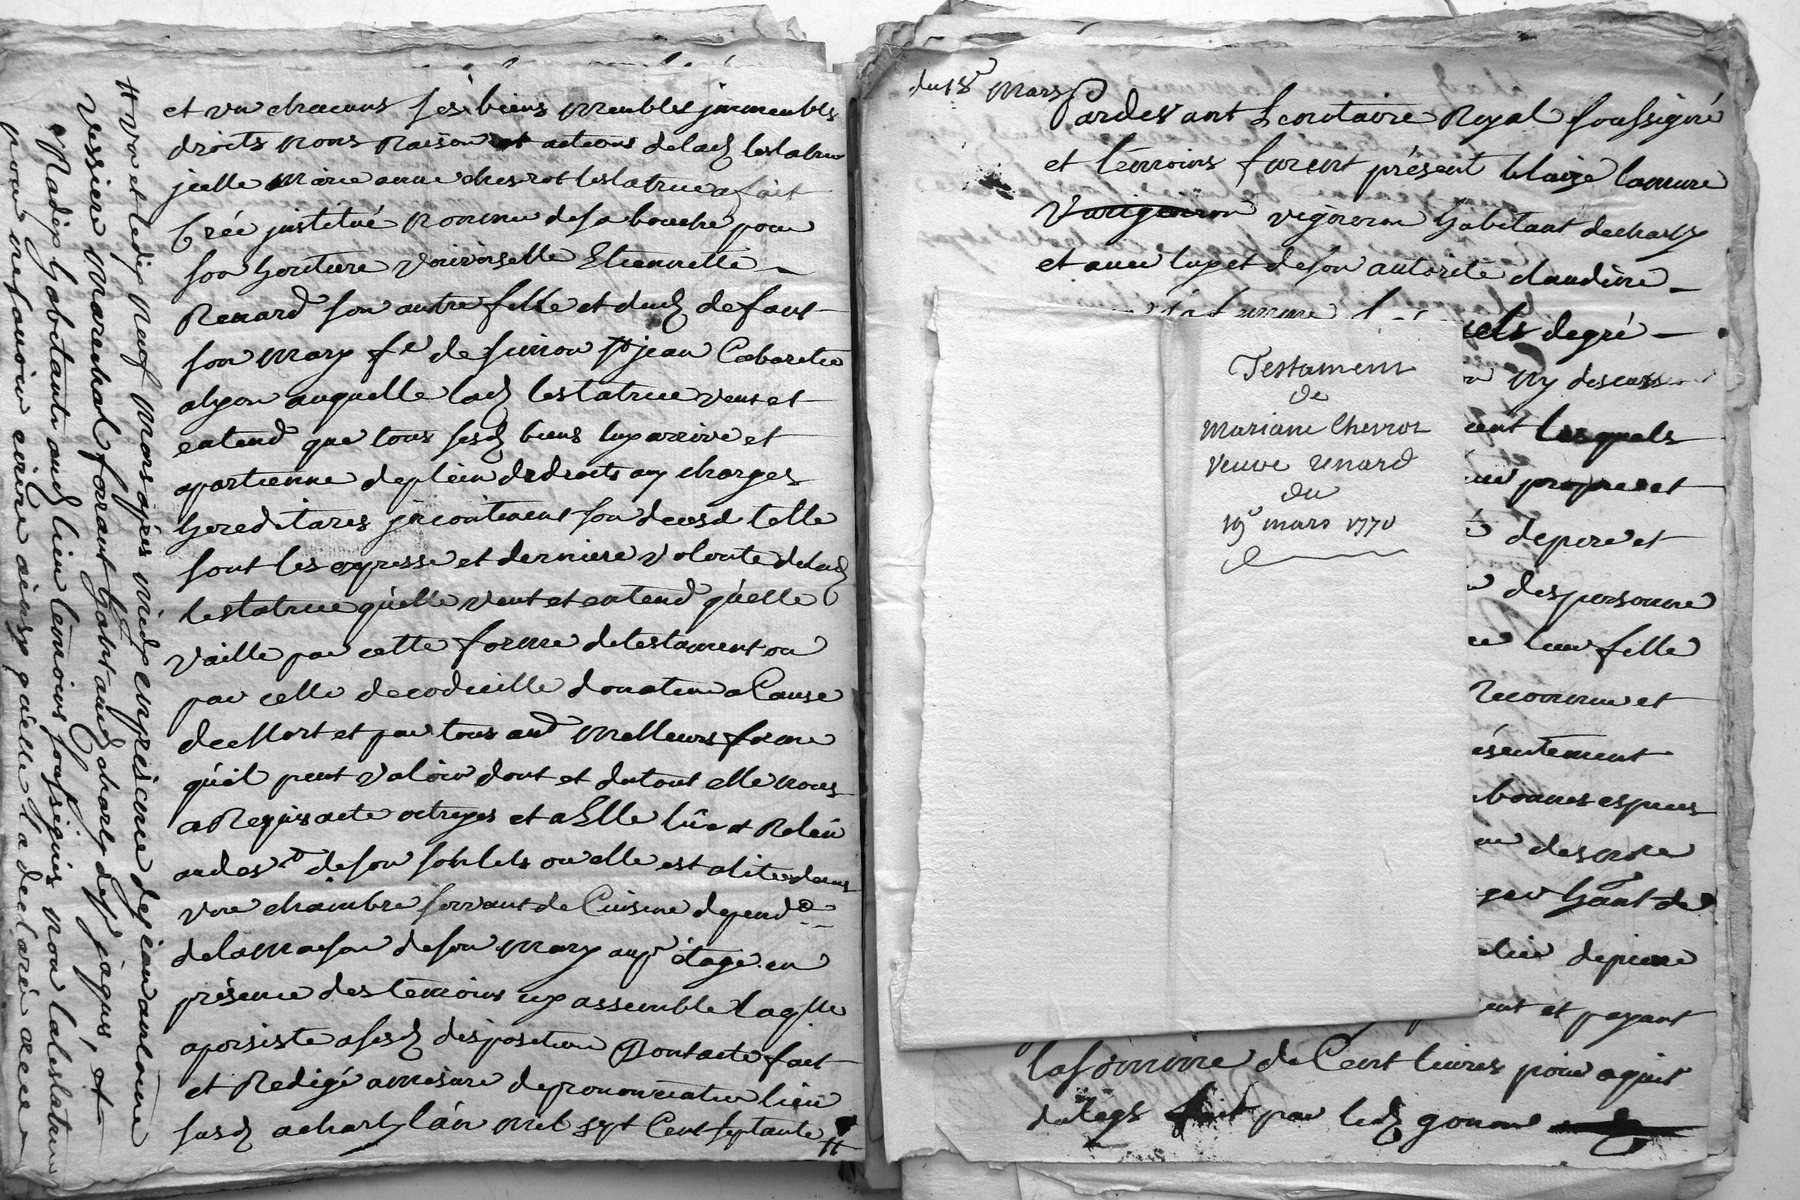 et un chacuns ses biens meubles immeubles
droits noms raison et actions de lad testatrice
icelle Marie anne chevrot testatrice a fait
Créé institué nommé de sa bouche pour
son heritiere universelle Etiennette
Renard son autre fille et dud defunt
son mary fe de simon st jean Cabaretie
a lyon auquelle lad testatrice veut et
entend que tous sesd biens luy arrive et
apartienne de plein de droits aux charges
hereditaires incontinent son deces telle
sont les expresse et derniere volonte de lad
testatrice qu'elle veut et entend qu'elle
vaille par cette forme de testament ou
par celle de codicille donation a Cause
de Mort et par tous aud Melleurs forme
qu'il peut valoir dont et du tout elle nous
a Requis acte octroyes et a Elle lüe et Releü
au de son ou elle est alitée dans
une chambre servant de Cuisine depend
de la maison de son Mary au étage en
présence des temoins icy assemble laqlle
a persiste a sesd disposition Dont acte fait
et Redigé a mesure de prononciation lieu
susd a charly l'an mil sept Cent septante #
# un et le dix neuf Mars apres midy en présence de jean antoine
vessiere Marechal ferrant habitant aud charly de jaques, et
Nadix habitants aud lieu temoins soussignes non la testatrice
pour ne scavoir ecrire ainsy qu'elle l'a declaré avec
du 18e Mars
Pardevant le notaire Royal soussigné
et temoins furent présent blaise lamure
vigneron habitant de charly
et avec luy et de son autorite claudine
uels de gré
ny discussion
lesquels
propre et
de pere et
des personne
leur fille
reconnue et
ésentement
bonnes especes
des
hant de
de pierre
ent et payant
la somme de Cent livres pour aquit
du legs fait par led gonon
Testament
de
Mariane Chevrot
Veuve Renard
du
19e mars 1770